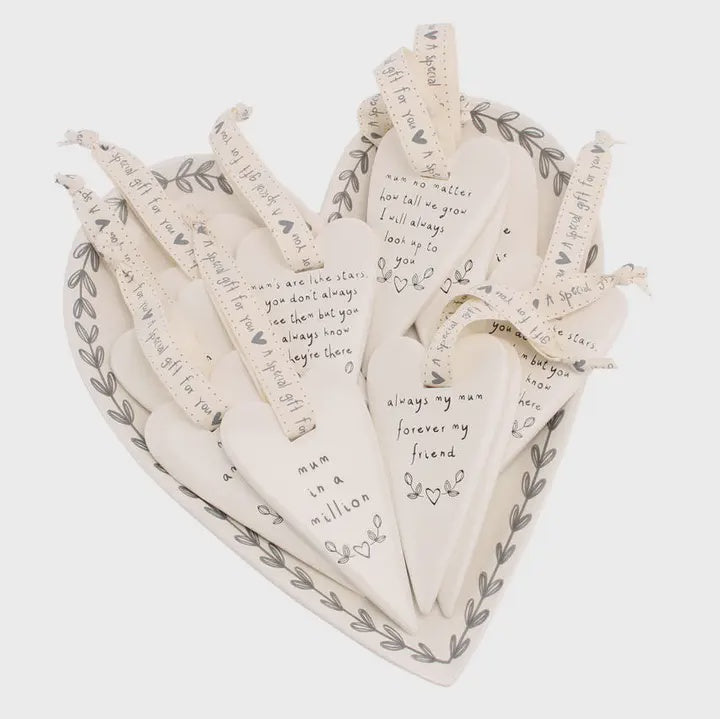 A special gift for you
mum no matter
how tall we grow
I will always
look up to
you
A special gift for you
mum's are like stars,
you don't always
see them but you
always know
they're there
always my mum
forever my
friend
mum
in a
million
A special gift for you
A special gift for you
A special gift for you
A special gift for
A special gift for you
A special
like stars,
you
them but you
know
there